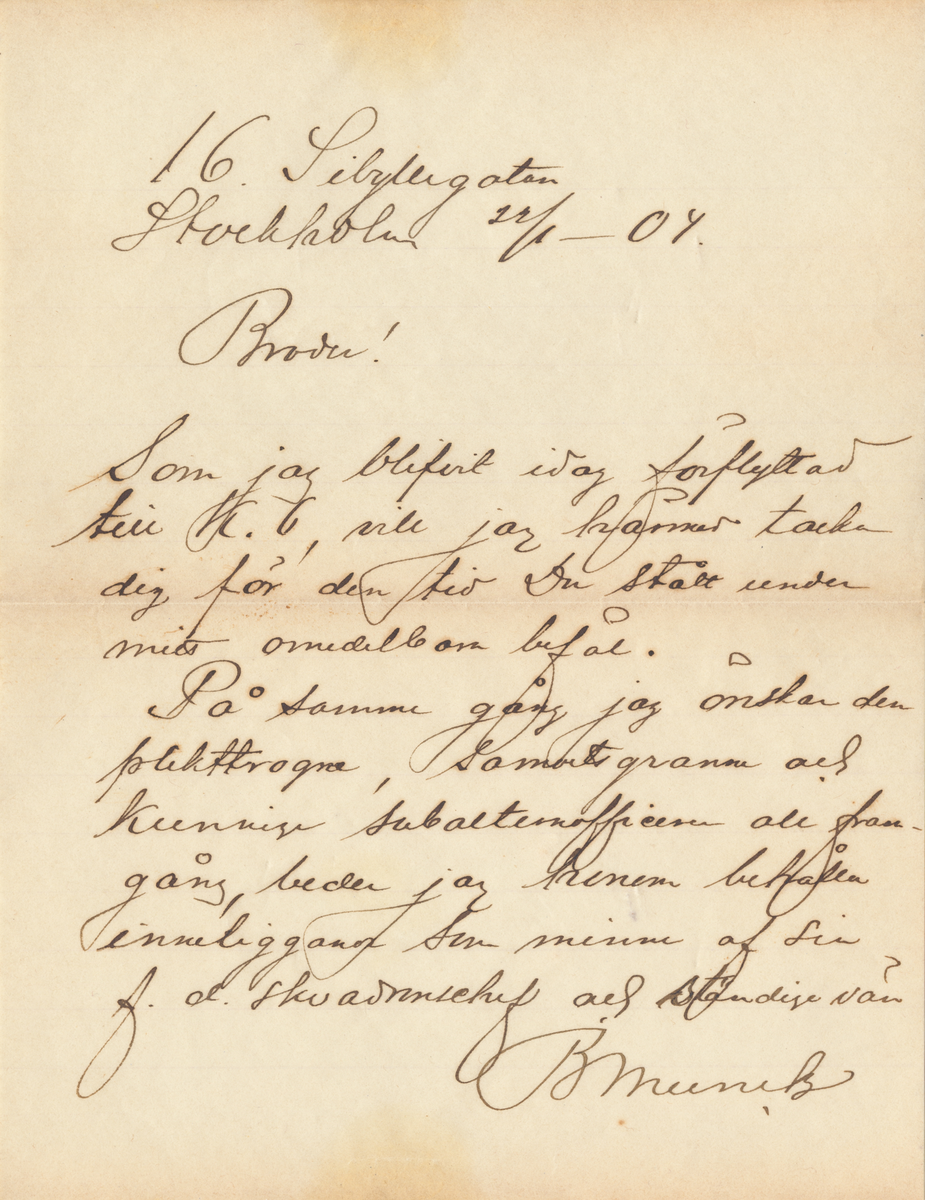 16. Sibyllegatan
Stockholm 22/1 – 04.
Broder!
Som jag blifvit idag förflyttad
till K. T, vill jag härmed tacka
dig för den tid Du stått under
mitt omedelbara befäl.
På samma gång jag önskar den
plikttrogne, samvetsgranne och
kunnige subalternofficeren all fram-
gång, beder jag honom behålla
inneliggande som minne af sin
f. d. skvadronschef och ständige vän
BMunck